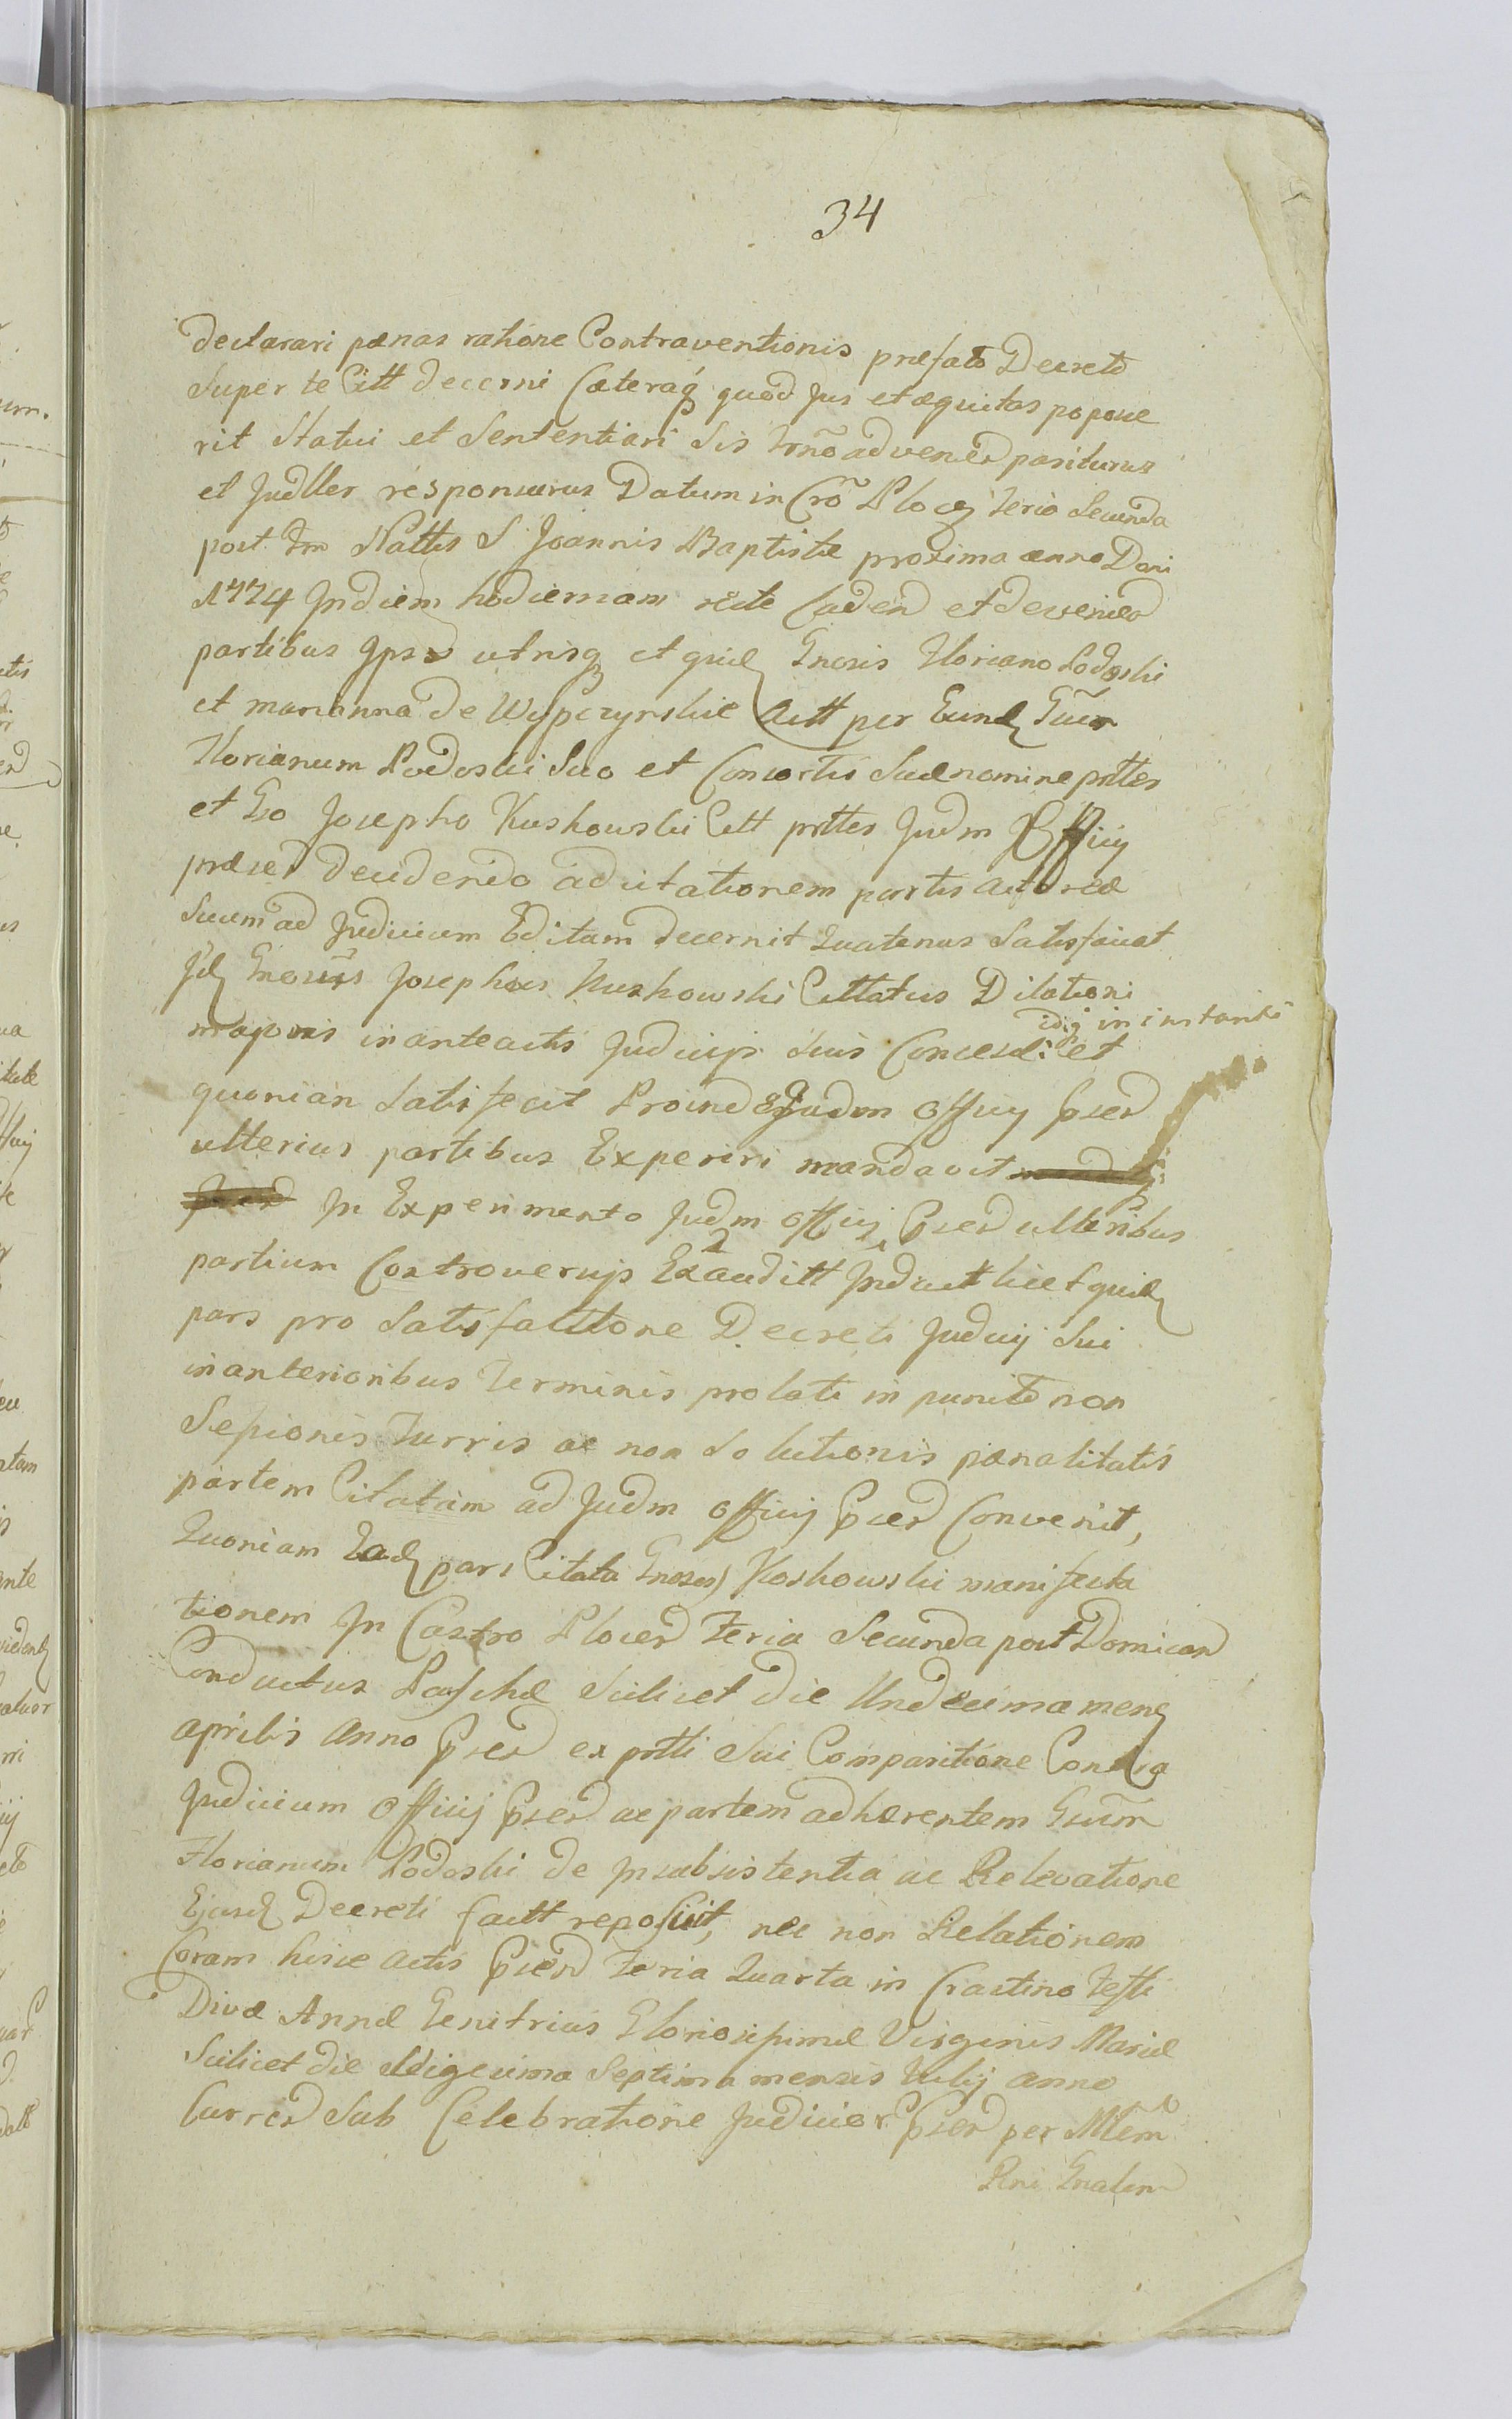 34
declarari pænas ratione Contraventionis præfato Decreto
Super te Citt decerni Cæteraq quod Jus et æquitas popose
rit Statui et Sententiari Sis Trno adveniend pariturus
et Judller responsurus Datum in Cro Plocen feria Secunda
post Fm Nattis S Joannis Baptistæ proxima anno Dni
1774 In diem hodiernam recte Caden et devenien
partibus Ipsis utrisq et quid Gnosis Floriano Podoski
et marianna de Wypczynskie Actt per Eund Gnum
Florianum Podoski Suo et Consortis Suæ nomine prttes
et Gso Josepho Kuskowski Citt prttes Judm Officij
præsed Decidendo ad citationem partis actoreæ
Suum ad Judicium Editam decernit Quatenus Satisfaciat
Id Gnosus Josephus Kuskowski Cittatus Dilationi
idq in instanti
majoris in anteactis Judicijs Suis Concess: et
quoniam Satisfecit Proinde Judm Officij psed
ulterius partibus Experiri mandavit
In Experimento Judm Officij psed ulteribus
partium Controversijs Exauditt Induct licet quid
pars pro Satisfactione Decreti Judicij Sui
in anterioribus Terminis prolati in puncto non
Sessionis Turris ac non Solutionis pænalitatis
partem Citatam ad Judm Officij psed Convenit,
Quoniam Ead pars Citata Gnosus Koskowski manifesta
tionem In Castro Plocen feria Secunda post Domican
Conductus Paschæ Scilicet die Undecima mens
aprilis Anno psed ex prtti Sui Comparitione Contra
Judicium Officij psed ac partem adhærentem Gsum
Florianum Podoski de Insubsistentia ac Relevatione
Ejusd Decreti factt reposuit, nec non Relationem
Coram hisce actis psed feria Quarta in Crastino Festi
Divæ Annæ Genitricis Gloriosissimæ Virginis Mariæ
Scilicet die Vigesima Septima mensis Julij anno
Curren Sub Celebratione Judicior psed per Mtem
Rni Gnalem